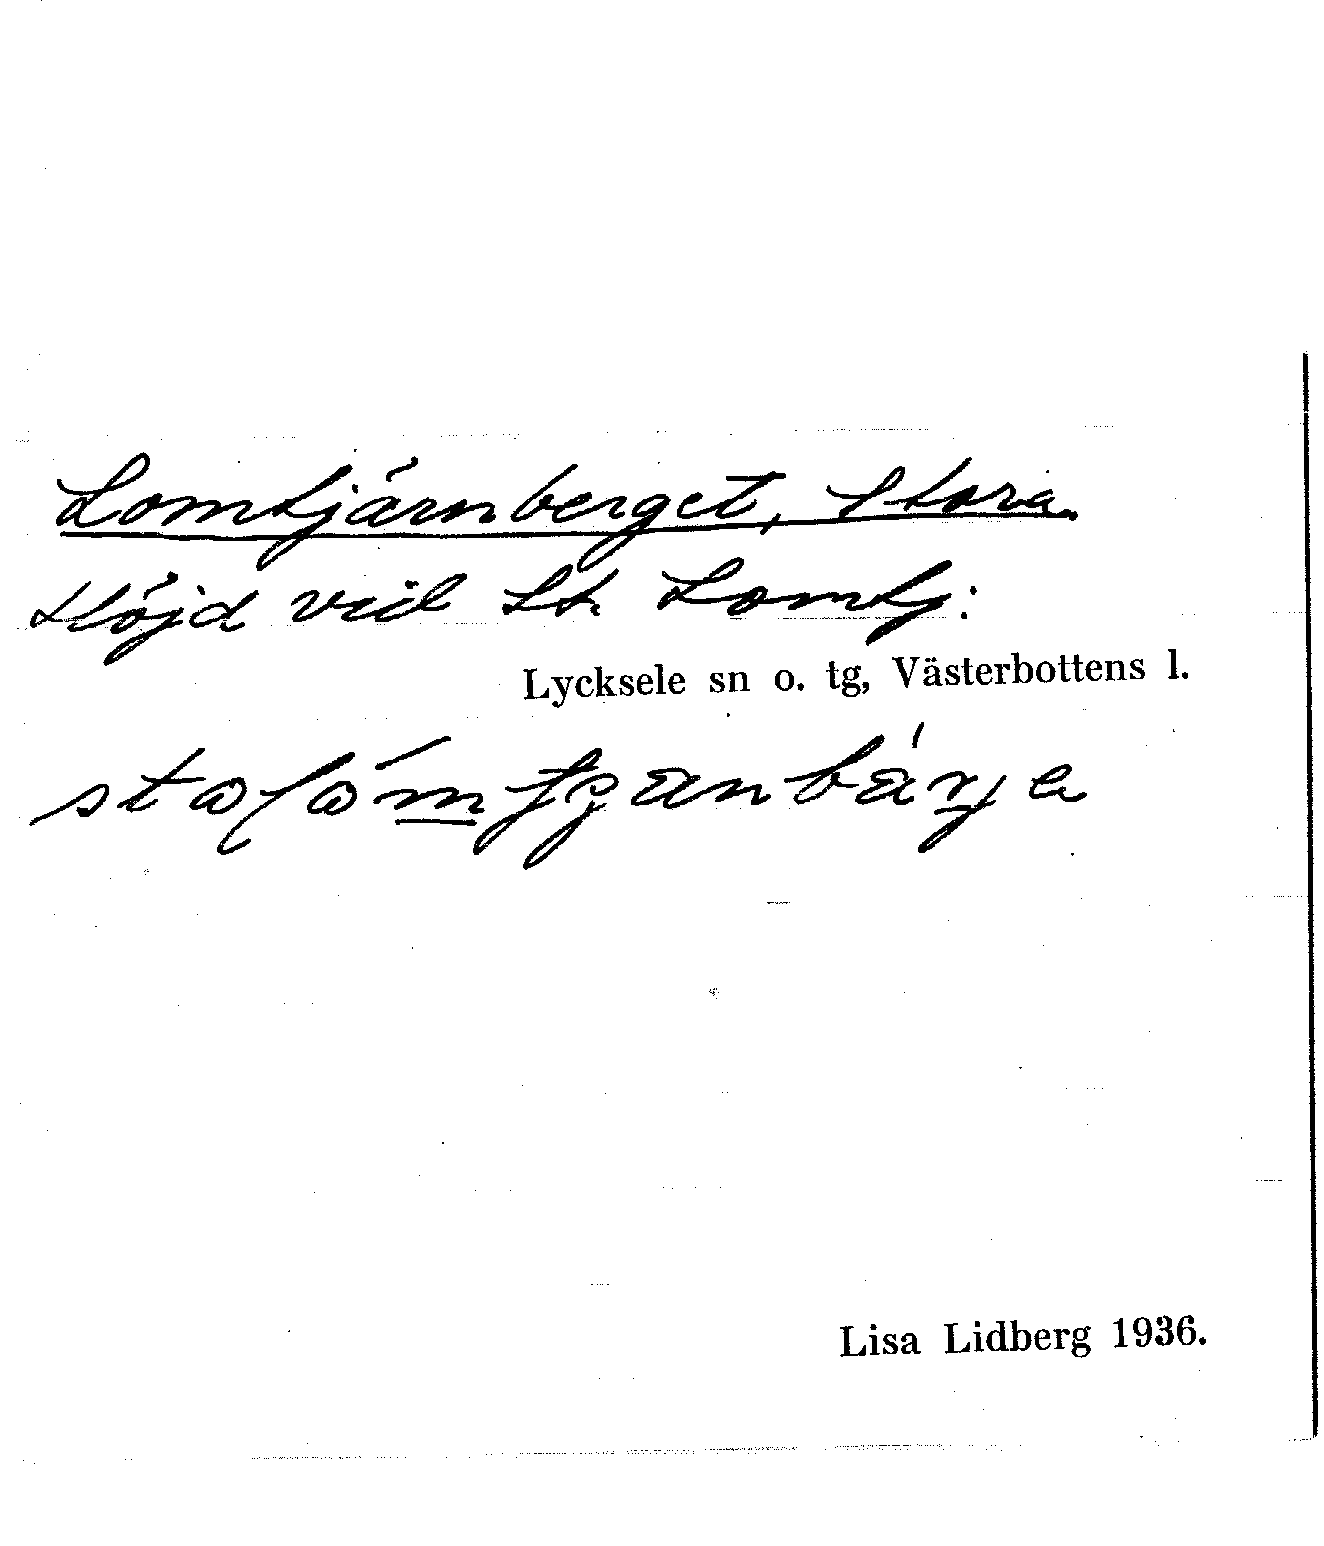 Lomtjärnberget, Stora.
Höjd vid St. Lomtj:
Lycksele sn o. tg, Västerbottens l.
Lisa Lidberg 1936.